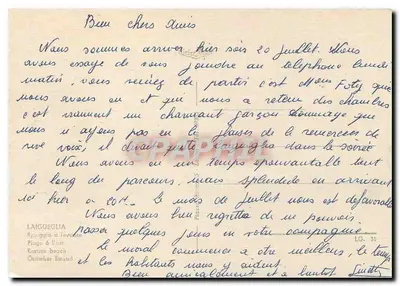 Bien chers amis
Nous sommes arrivés hier soir 20 juillet. Nous
avons essayé de vous joindre au téléphone lundi
matin, vous veniez de partir c'est Mons Foty que
nous avons eu et qui nous a retenu des chambres
c'est vraiment un charmant garçon dommage que
nous n'ayons pas eu le plaisir de le remercier de
vive voix, il quitte dans la soirée
Nous avons eu un temps épouvantable tout
le long du parcours, mais splendide en arrivant
ici hier a 20H. le mois de juillet nous est défavorable
Nous avons bien regretté de ne pouvoir
passer quelques jours en votre compagnie
Le moral commence a être meilleur, le temps
et les habitants nous y aident.
Bien amicalement et a bientot
LAIGUEGLIA
Spiaggia di Levante
LG. 31